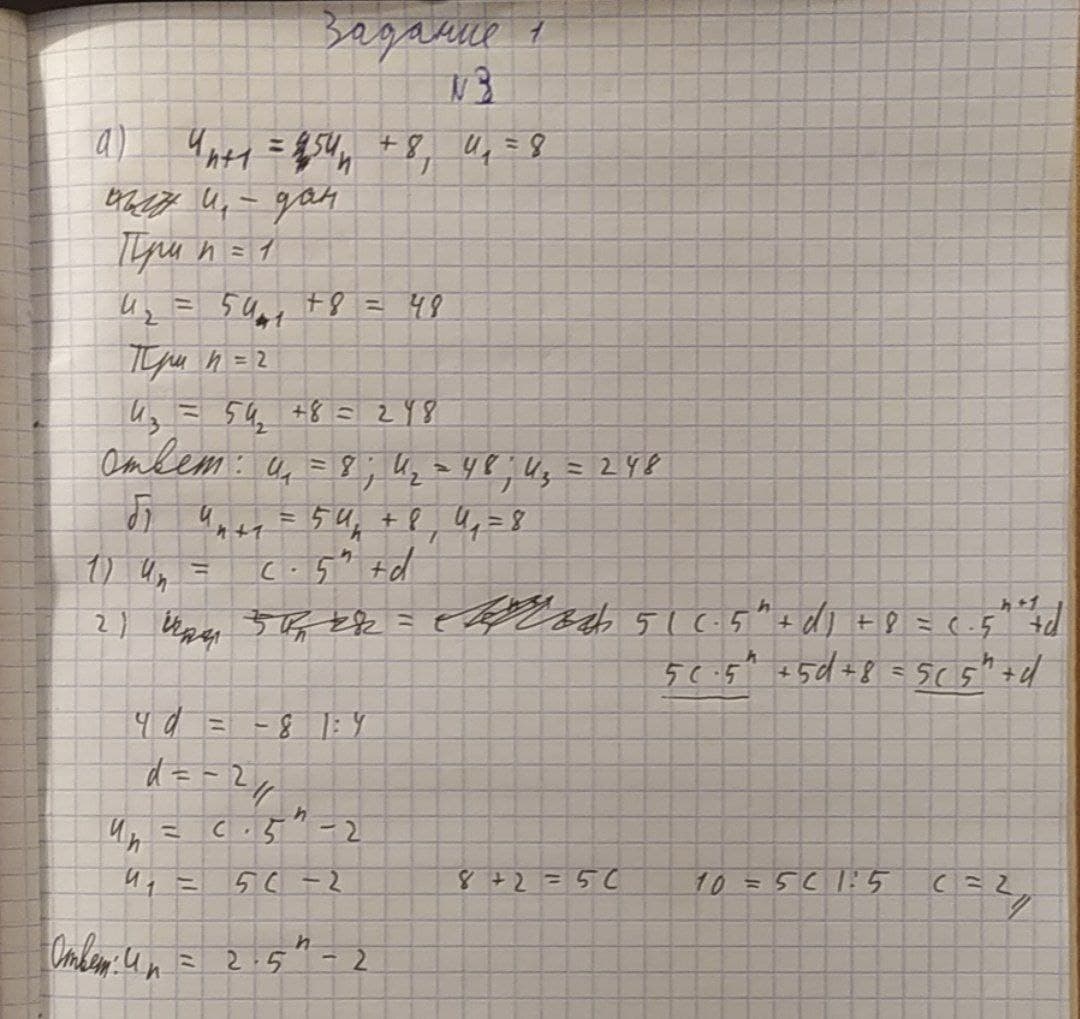 Задание 1
№3
а) u_{n+1} = 5u_n + 8, u_1 = 8
u_1 – дан
При n = 1
u_2 = 5u_1 + 8 = 48
При n = 2
u_3 = 5u_2 + 8 = 248
Ответ: u_1 = 8; u_2 = 48; u_3 = 248
б) u_{n+1} = 5u_n + 8, u_1 = 8
1) u_n = c · 5^n + d
2) 5(c · 5^n + d) + 8 = c · 5^{n+1} + d
5c · 5^n + 5d + 8 = 5c 5^n + d
4d = -8 |:4
d = -2
u_n = c · 5^n - 2
u_1 = 5c - 2 8 + 2 = 5c 10 = 5c |:5 c = 2
Ответ: u_n = 2 · 5^n - 2